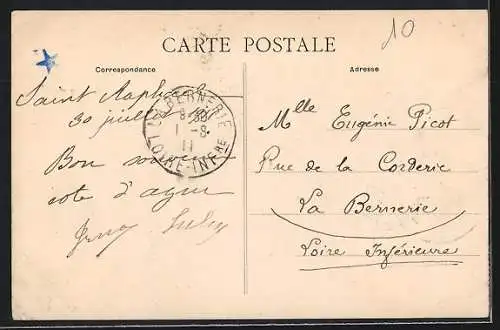 10
CARTE POSTALE
Correspondance
Adresse
Saint Raphaël
30 juillet
Bon souvenir
cote d'azur
LA BERNERIE
8-30
1-8
11
LOIRE-INFRE
Mlle Eugénie Picot
Rue de la Corderie
La Bernerie
Loire Inférieure